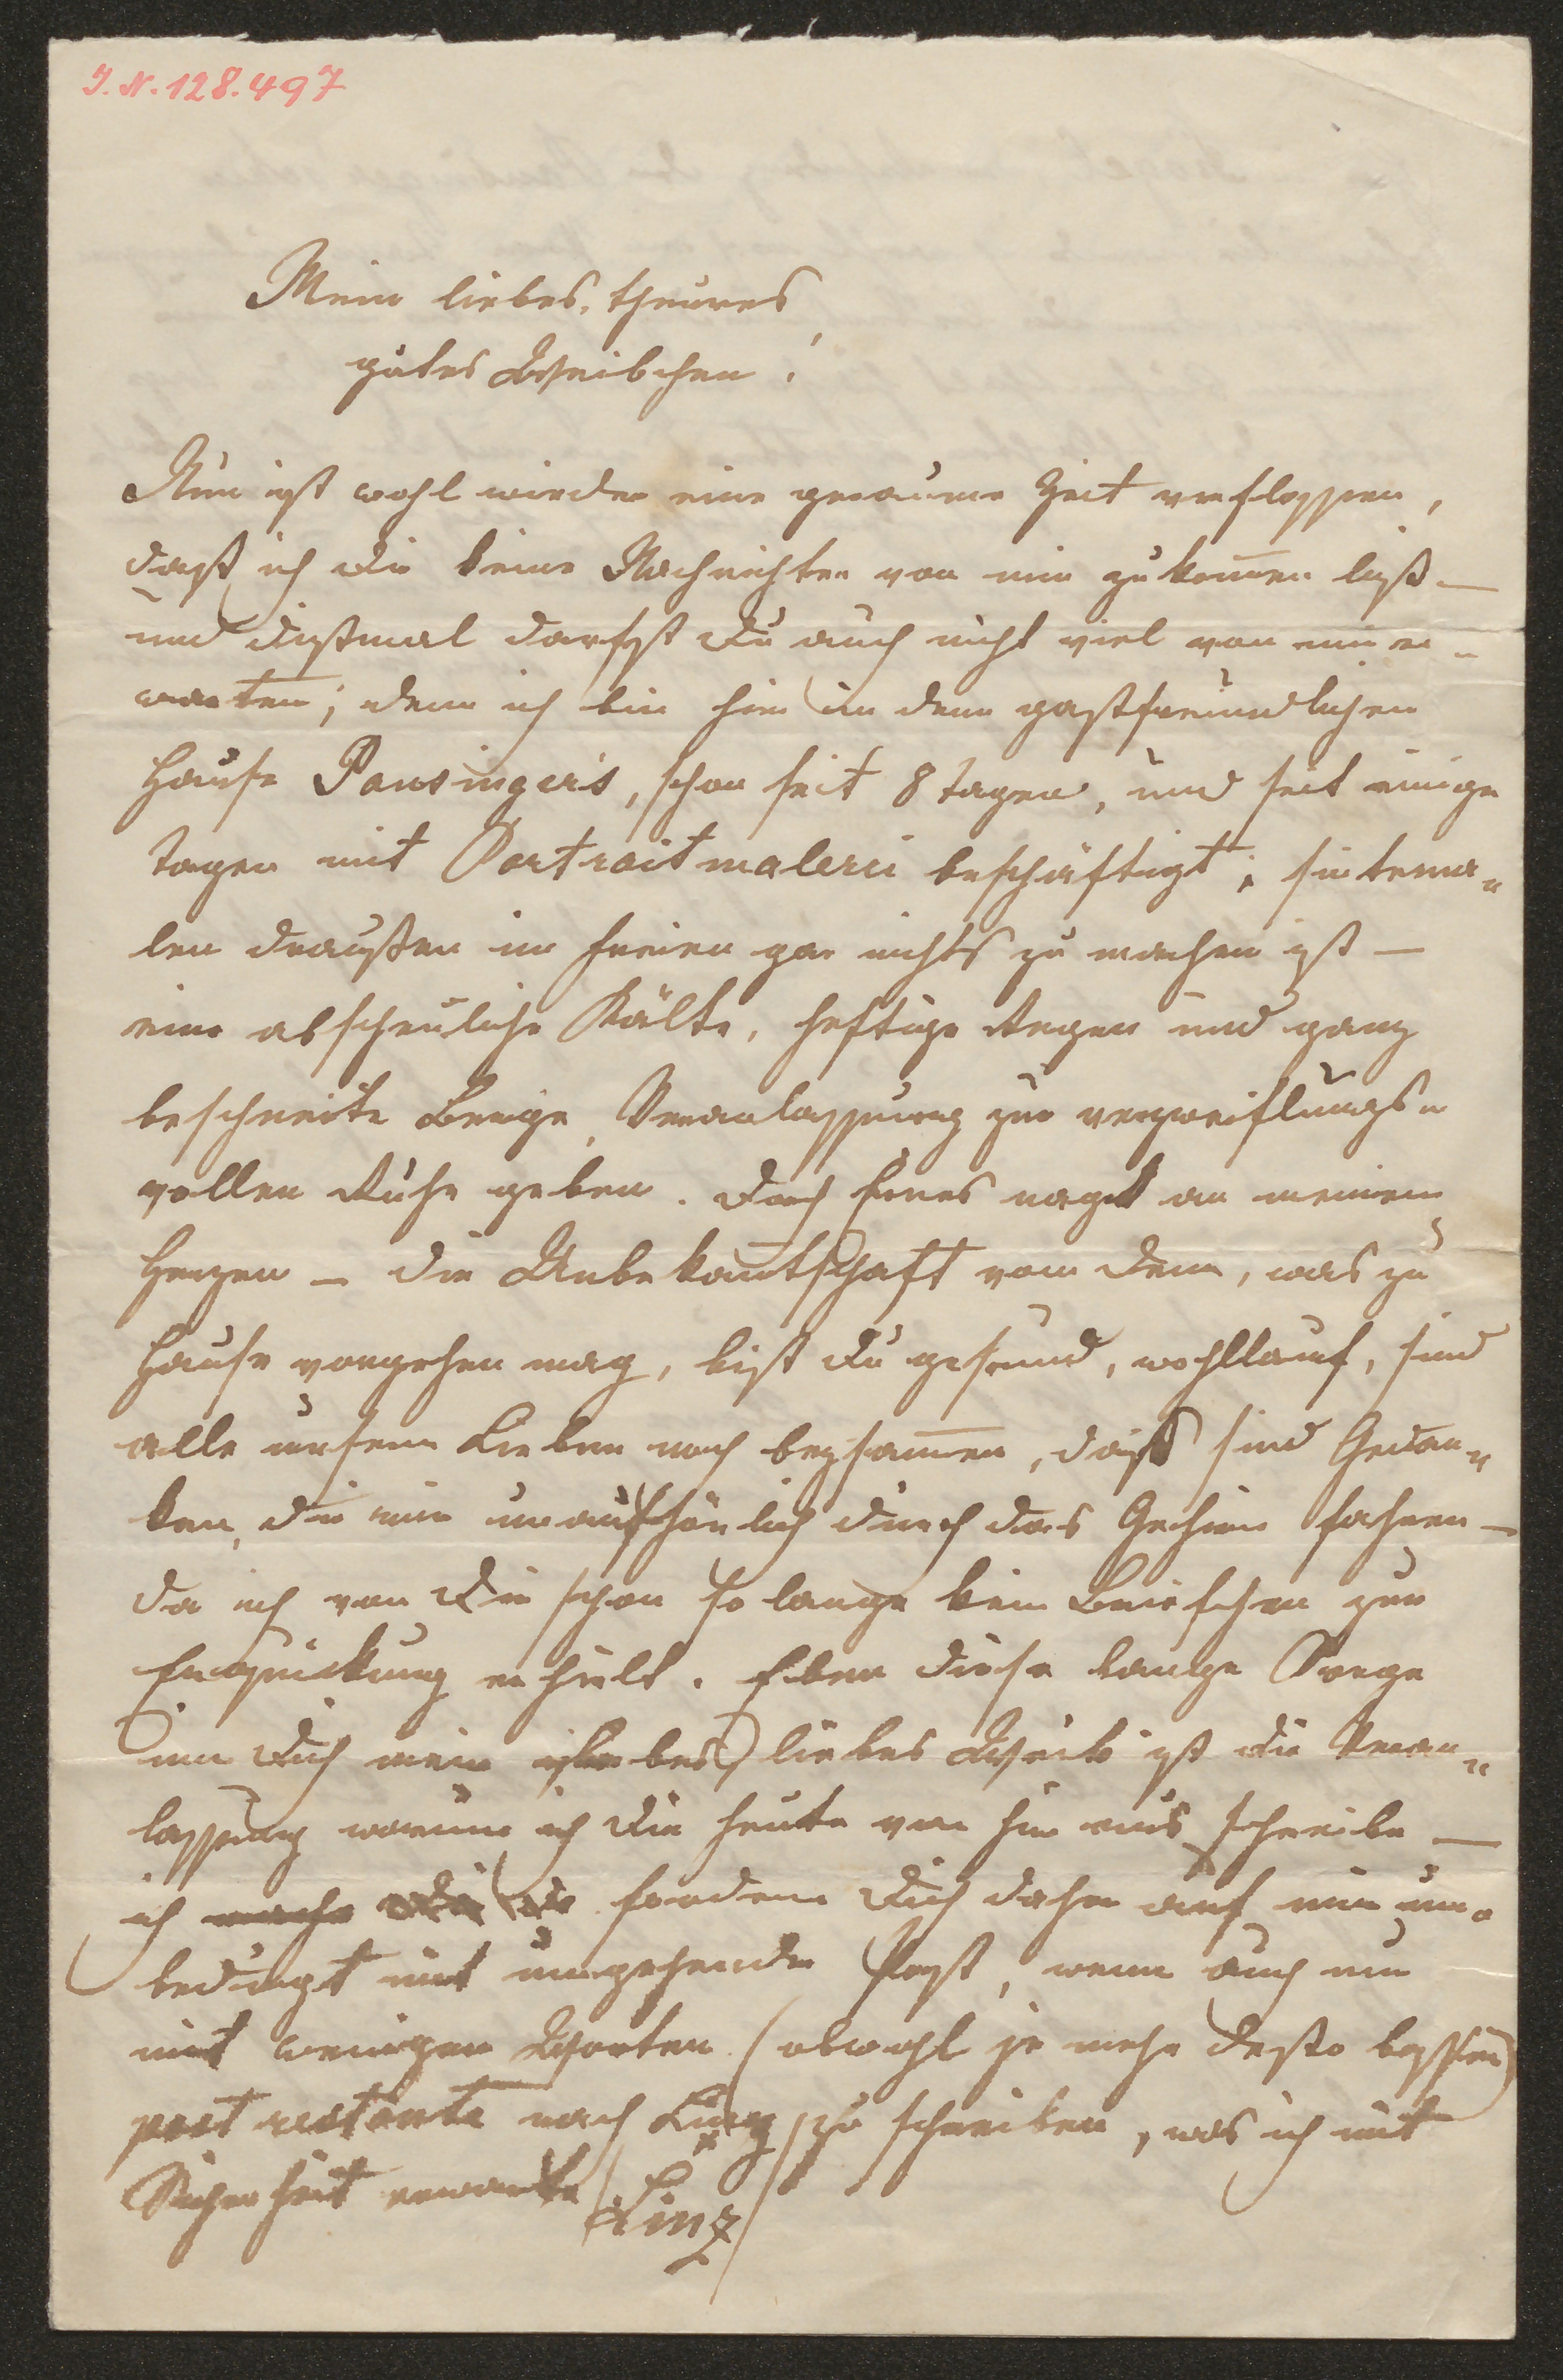 I. N. 128.497
Mein liebes, theures
gutes Weibchen!
Nun ist wohl wieder eine geraume Zeit verflossen,
daß ich Dir keine Nachrichten von mir zukom̄en ließ —
und dießmal darfst Du auch nicht viel von mir er-
warten; denn ich bin hier in dem gastfreundlichen
Hause Pausinger's, schon seit 8 Tagen, und seit einige
Tagen mit Portraitmalerei beschäftigt; sintema-
len draußen im Freien gar nichts zu machen ist —
eine abscheuliche Kälte, heftige Regen und ganz
beschneite Berge, Veranlassung zur verzweiflungs-
vollen Ruhe geben. Doch Eines nagt an meinem
Herzen — die Unbekan̄tschaft von dem, was zu
Hause vorgehen mag, bist Du gesund, wohllauf, sind
alle unsere Lieben noch beysam̄en, dieß sind Gedan-
ken, die mir unaufhörlich durch das Gehirn fahren —
da ich von Dir schon so lange kein Briefchen zur
Erquickung erhielt. Eben diese bange Sorge
um Dich mein liebes) liebes Weib ist die Veran-
lassung warum ich Dir heute von hier aus schreibe —
ich mache Dir fordere Dich daher auf mir un-
bedingt mit umgehender Post, wenn auch nur
mit wenigen Worten (obwohl je mehr desto besser)
post restante nach Linz zu schreiben, was ich mit
Sicherheit erwarte
Linz